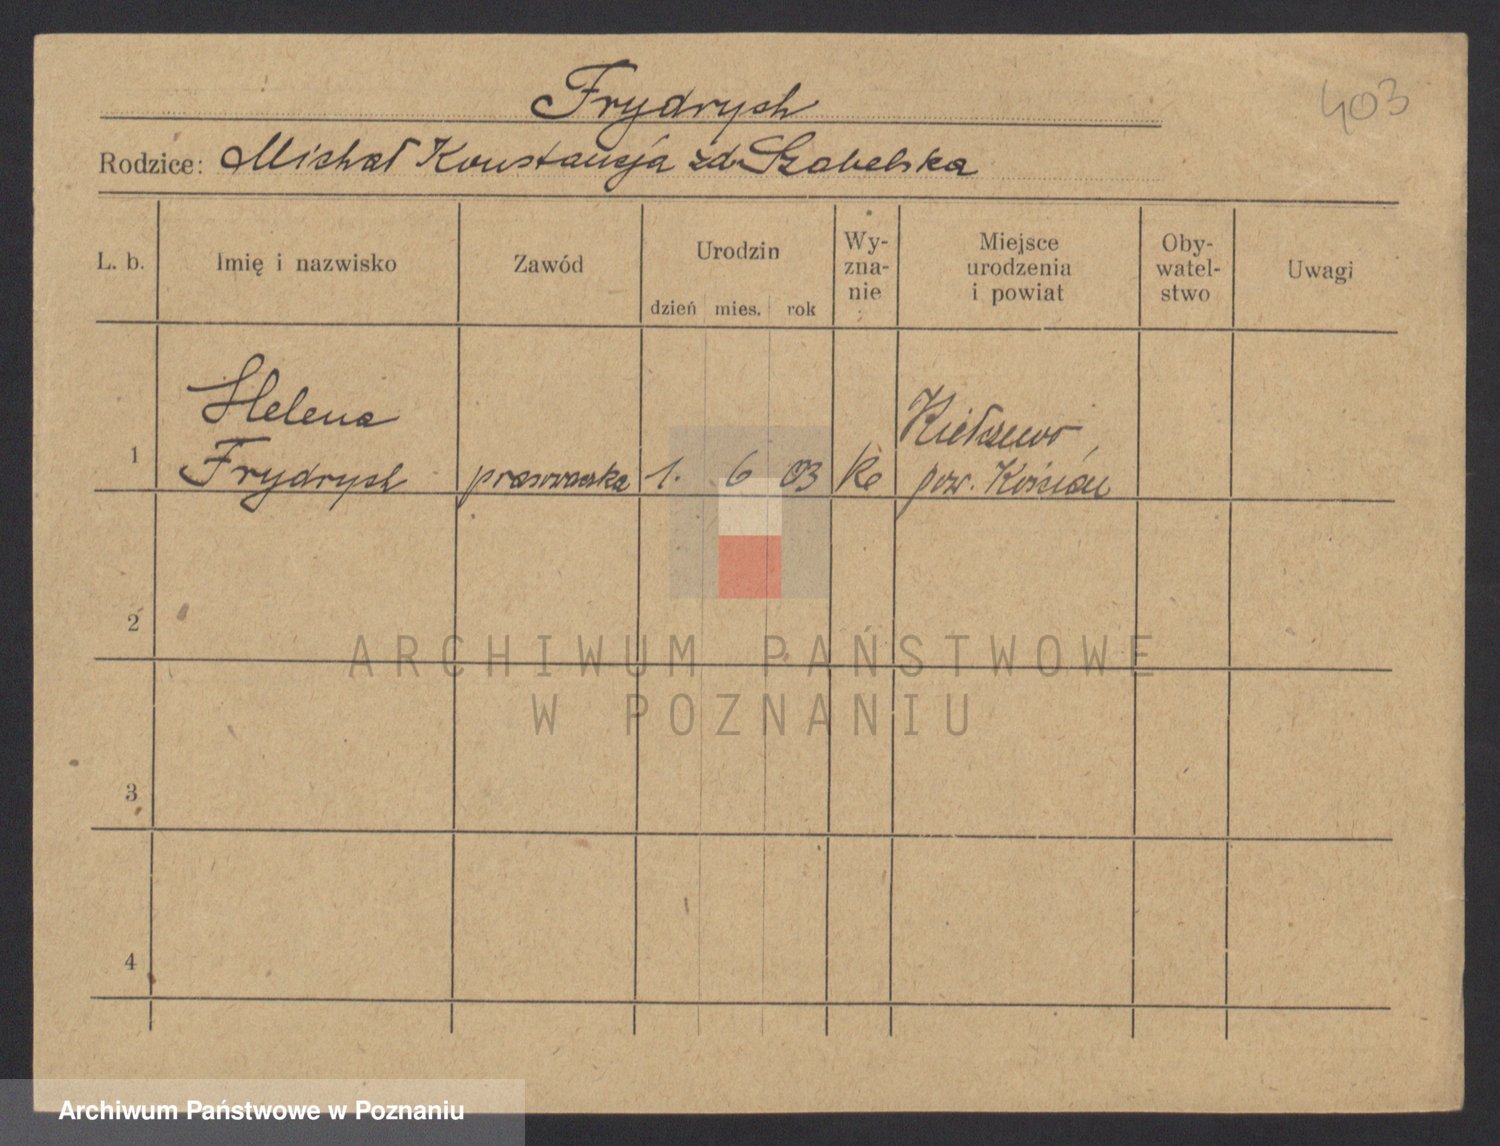 403
Frydrych
Rodzice: Michał Konstancja zd Szabelska
L. b.
Imię i nazwisko
Zawód
Urodzin
dzień mies. rok
Wy-
zna-
nie
Miejsce
urodzenia
i powiat
Oby-
watel-
stwo
Uwagi
1
Helena
Frydrych
prasowaczka
1. 6 03
Kiełczewo
pow. Kościan
2
3
4
ARCHIWUM PAŃSTWOWE
W POZNANIU
Archiwum Państwowe w Poznaniu